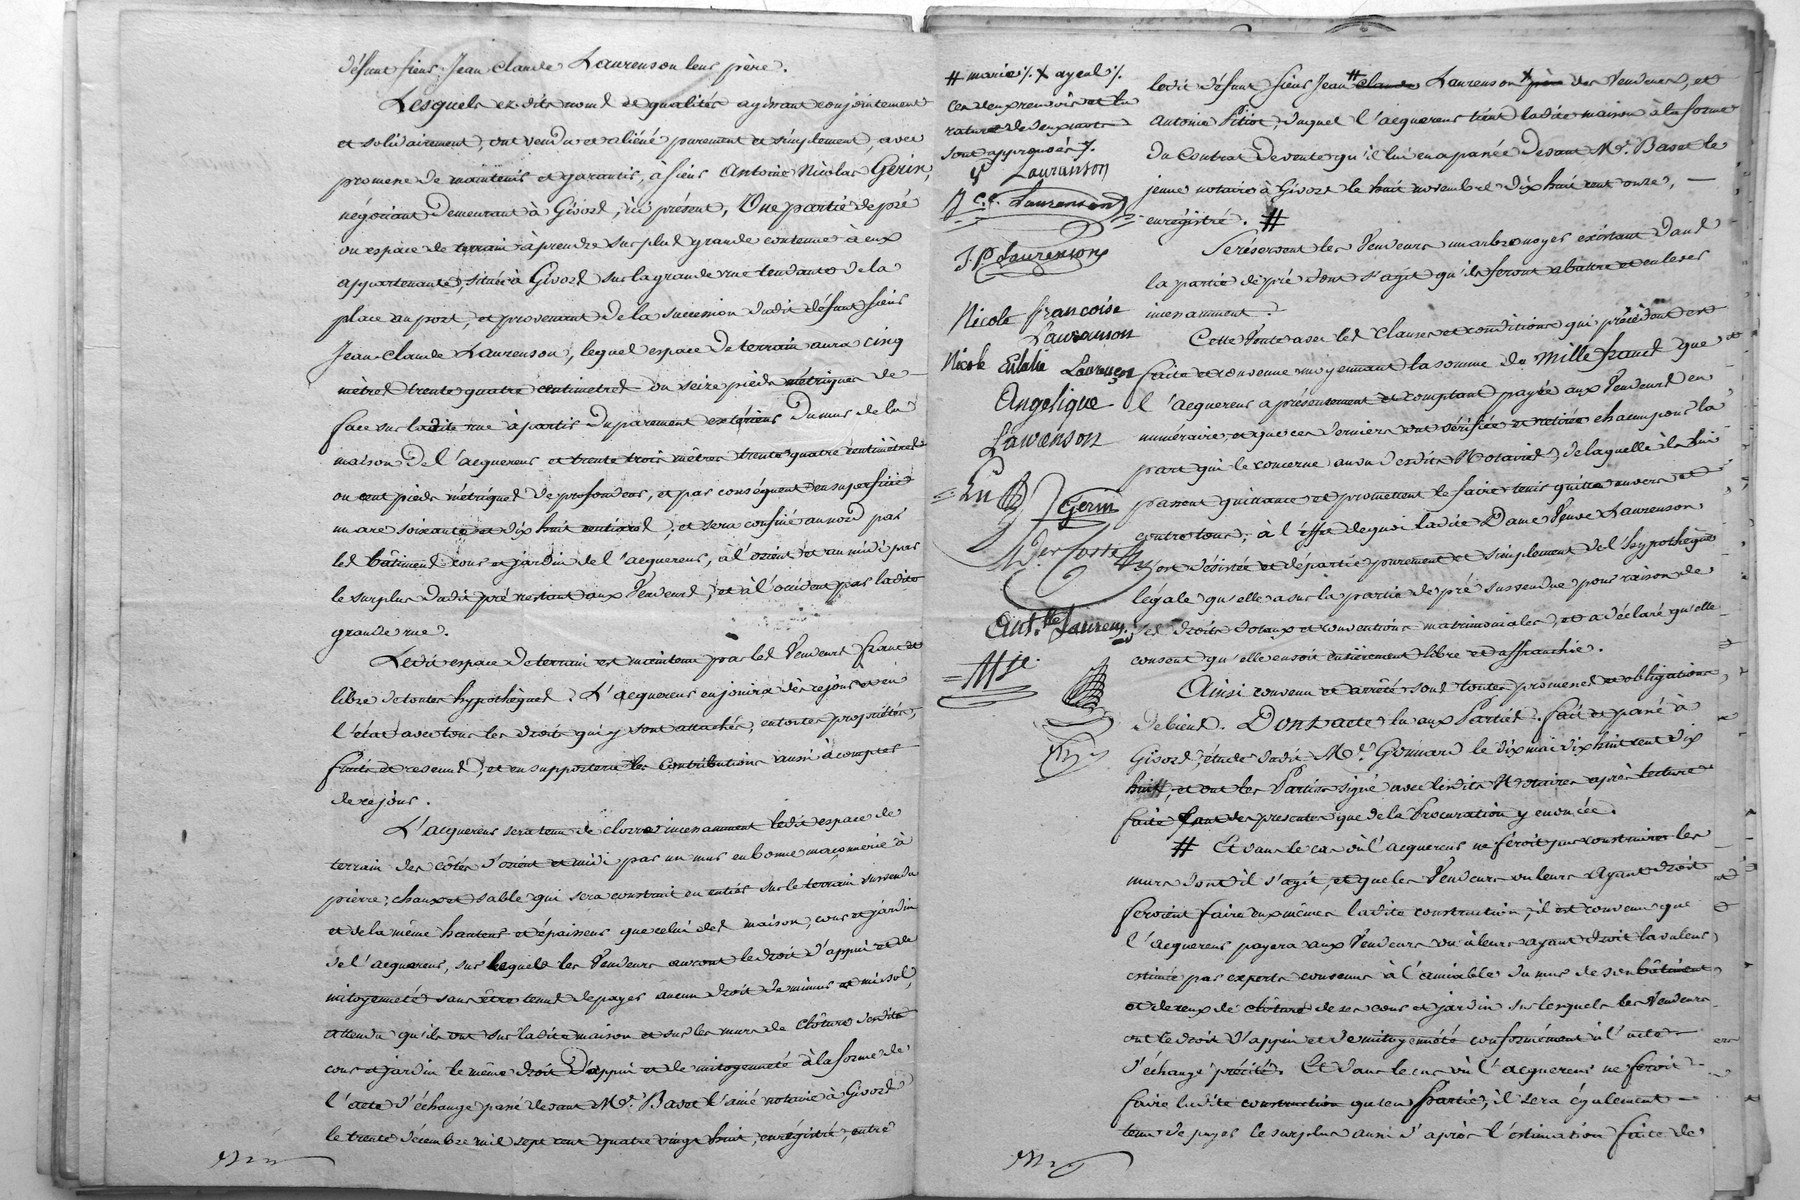 défunt sieur Jean Claude Laurenson leur père.
Lesquels esdits noms et qualités agissant conjointement
et solidairement, ont vendu et aliéné purement et simplement, avec
promesse de maintenir et garantir, à sieur Antoine Nicolas Gerin,
négociant demeurant à Givors, ici présent, Une partie de pré
ou espace de terrain à prendre sur plus grande contenue à eux
appartenante, située à Givors sur la grande rue tendante de la
place au port, et provenant de la succession dudit défunt sieur
Jean Claude Laurenson, lequel espace de terrain aura cinq
mètres trente quatre centimetres ou seize pieds métriques de
face sur ladite rue à partir du parement extérieur du mur de la
maison de l'acquereur et trente trois mètres trente quatre centimètres
ou cent pieds métriques de profondeur, et par conséquent en superficie
un are soixante et dix huit centiares, et sera confiné au nord par
les bâtiments cour et jardin de l'acquereur, à l'orient et au midi par
le surplus dudit pré restant aux Vendeurs, et à l'occident par ladite
grande rue.
Ledit espace de terrain est maintenu par les Vendeurs franc et
libre de toutes hypothèques. L'acquereur en jouira dès ce jour et en
l'état avec tous les droits qui y sont attachés, en toutes propriétés,
fruits et revenus, et en supportera les Contributions aussi à compter
de ce jour.
L'acquereur sera tenu de clorre incessamment ledit espace de
terrain des côtés d'orient et midi par un mur en bonne maçonnerie à
pierre, chaux et sable qui sera construit en entier sur le terrain susvendu
et de la même hauteur et épaisseur que celui des maison, cour et jardin
de l'acquereur, sur lequels les Vendeurs auront le droit d'appui et de
mitoyenneté sans être tenus de payer aucun droit de mimur et misol,
attendu qu'ils ont sur ladite maison et sur les murs de clôture desdits
cour et jardin le même droit d'appui et de mitoyenneté à la forme de
l'acte d'échange passé devant Me. Basset l'ainé notaire à Givors
le trente décembre mil sept cent quatre vingt huit, enregistré, entre
# marie /. + ayeul /.
ces deux renvois et la
rature de deux mots
sont approuvés /.
Lauranson
J. C. Laurenson
J. P. Laurenson
Nicole françoise
Lauranson
Nicole Eulalie Laurençon
Angelique
Laurenson
Gerin
Ant.tte Laurens
ledit défunt sieur Jean # claude Laurenson + père des Vendeurs, et
Antoine Pitiot, duquel l'acquereur tient ladite maison à la forme
du Contrat de vente qu'il lui en a passée devant Me. Basset le
jeune notaire à Givors le huit novembre dix huit cent onze, —
enregistré. #
Se réservent les Vendeurs un arbre noyer existant dans
la partie de pré dont s'agit qu'ils feront abattre et enlever
incessamment.
Cette Vente avec les clauses et conditions qui précèdent est
faite et convenue moyennant la somme de Mille francs que
l'acquereur a présentement et comptant payée aux Vendeurs en
numéraire, et que ces derniers ont vérifiée et retirée chacun pour la
part qui le concerne au vu desdits Notaires, de laquelle ils lui
passent quittance et promettent le faire tenir quitte envers et
contre tous, à l'effet de quoi ladite Dame Veuve Laurenson
s'est désistée et départie purement et simplement de l'hypothèque
légale qu'elle a sur la partie de pré susvendue pour raison de
ses droits dotaux et conventions matrimoniales, et a déclaré qu'elle
consent qu'elle en soit entièrement libre et affranchie.
Ainsi convenu et arrêté sous toutes promesses et obligations
de biens. Dont acte lu aux Parties. fait et passé à
Givors, étude dudit Me. Gonnard le dix mai dix huit cent dix
huit, et ont les Parties signé avec lesdits Notaires après lecture
faite tant des presentes que de la Procuration y enoncée.
# Et dans le cas où l'acquereur ne feroit pas construire les
murs dont il s'agit, et que les Vendeurs ou leurs ayant droit
feroient faire eux mêmes ladite construction, il est convenu que
l'acquereur payera aux Vendeurs ou à leurs ayant droit la valeur
estimée par experts convenus à l'amiable du mur de son bâtiment
et de ceux de clôture de ses cour et jardin sur lesquels les Vendeurs
ont le droit d'appui et de mitoyenneté conformément à l'acte
d'échange précité. Et dans le cas où l'acquereur ne feroit
faire ladite construction qu'en partie, il sera également —
tenu de payer le surplus aussi d'après l'estimation faite de